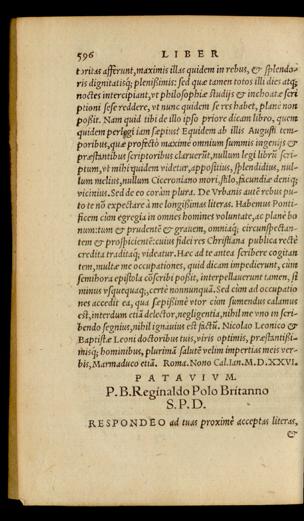 596 LIBER
toritas afferunt, maximis illas quidem in rebus, & splendo-
ris dignitatisq; plenißimis: sed quæ tamen totos illi dies atq;
noctes intercipiant, vt philosophiæ studijs & inchoatæ scri
ptioni sese reddere, vt nunc quidem se res habet, planè non
poßit. Nam quid tibi de illo ipso priore dicam libro, quem
quidem perlegi iam sæpius? Equidem ab illis Augusti tem-
poribus, quæ profectò maximè omnium summis ingenijs &
præstantibus scriptoribus claruerūt, nullum legi librū scri-
ptum, vt mihi quidem videtur, appositius, splendidius, nul-
lum melius, nullum Ciceroniano mori, stilo, facundiæ deniq;
vicinius. Sed de eo coràm plura. De Vrbanis autē rebus pu-
to te nō expectare à me longißimas literas. Habemus Ponti-
ficem cùm egregia in omnes homines voluntate, ac planè bo
num: tum & prudentē & grauem, omniaq; circunspectan-
tem & prospicientē: cuius fidei res Christiana publica rectè
credita traditaq; videatur. Hæc ad te antea scribere cogitan
tem, multæ me occupationes, quid dicam impedierunt, cùm
semihora epistola cōscribi poßit, interpellauerunt tamen, st
minus vsquequaq;, certè nonnunquā. Sed cùm ad occupatio
nes accedit ea, qua sæpißimè vtor cùm sumendus calamus
est, interdum etiā delector, negligentia, nihil me vno in scri-
bendo segnius, nihil ignauius est factū. Nicolao Leonico &
Baptistæ Leoni doctoribus tuis, viris optimis, præstantißi-
misq; hominibus, plurimā salutē velim impertias meis ver-
bis, Marmaduco etiā. Romæ. Nono Cal. Ian. M.D.XXVI.
PATAVIVM.
P. B. Reginaldo Polo Britanno
S. P. D.
RESPONDEO ad tuas proximè acceptas literas,
&